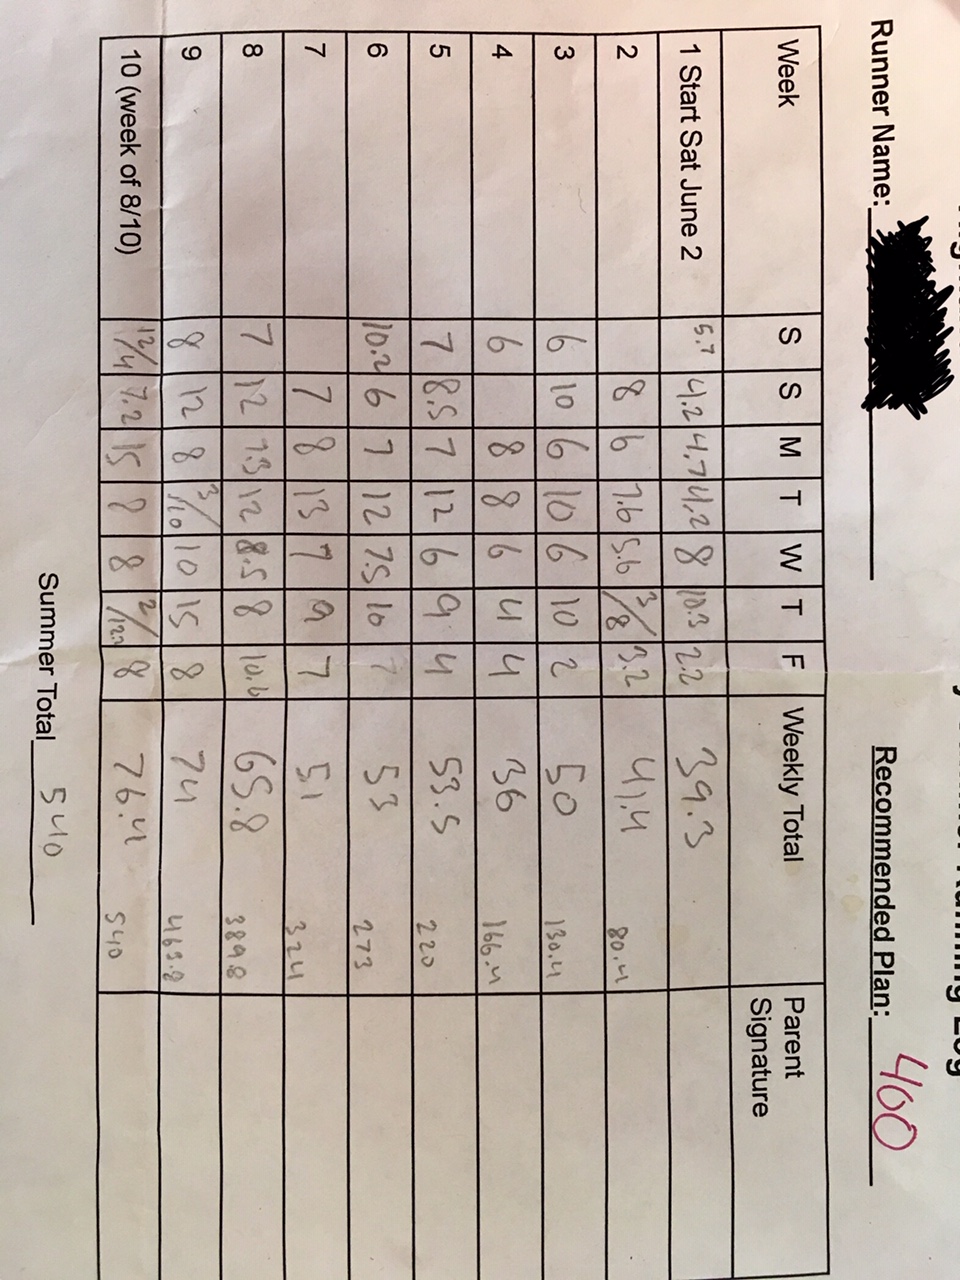 Runner Name:
Recommended Plan: 400
Week S S M T W T F Weekly Total Parent Signature
1 Start Sat June 2 5.7 4.2 4.7 4.2 8 10.3 2.2 39.3
2 8 6 7.6 5.6 3/8 3.2 41.4 80.4
3 6 10 6 10 6 10 2 50 130.4
4 6 8 8 6 4 4 36 166.4
5 7 8.5 7 12 6 9 4 53.5 220
6 10.2 6 7 12 7.5 10 7 53 273
7 7 8 13 7 9 7 51 324
8 7 12 7.3 12 8.5 8 10.6 65.8 389.8
9 8 12 8 3/10 10 15 8 74 463.8
10 (week of 8/10) 12/4 7.2 15 8 8 2/12.2 8 76.4 540
Summer Total 540